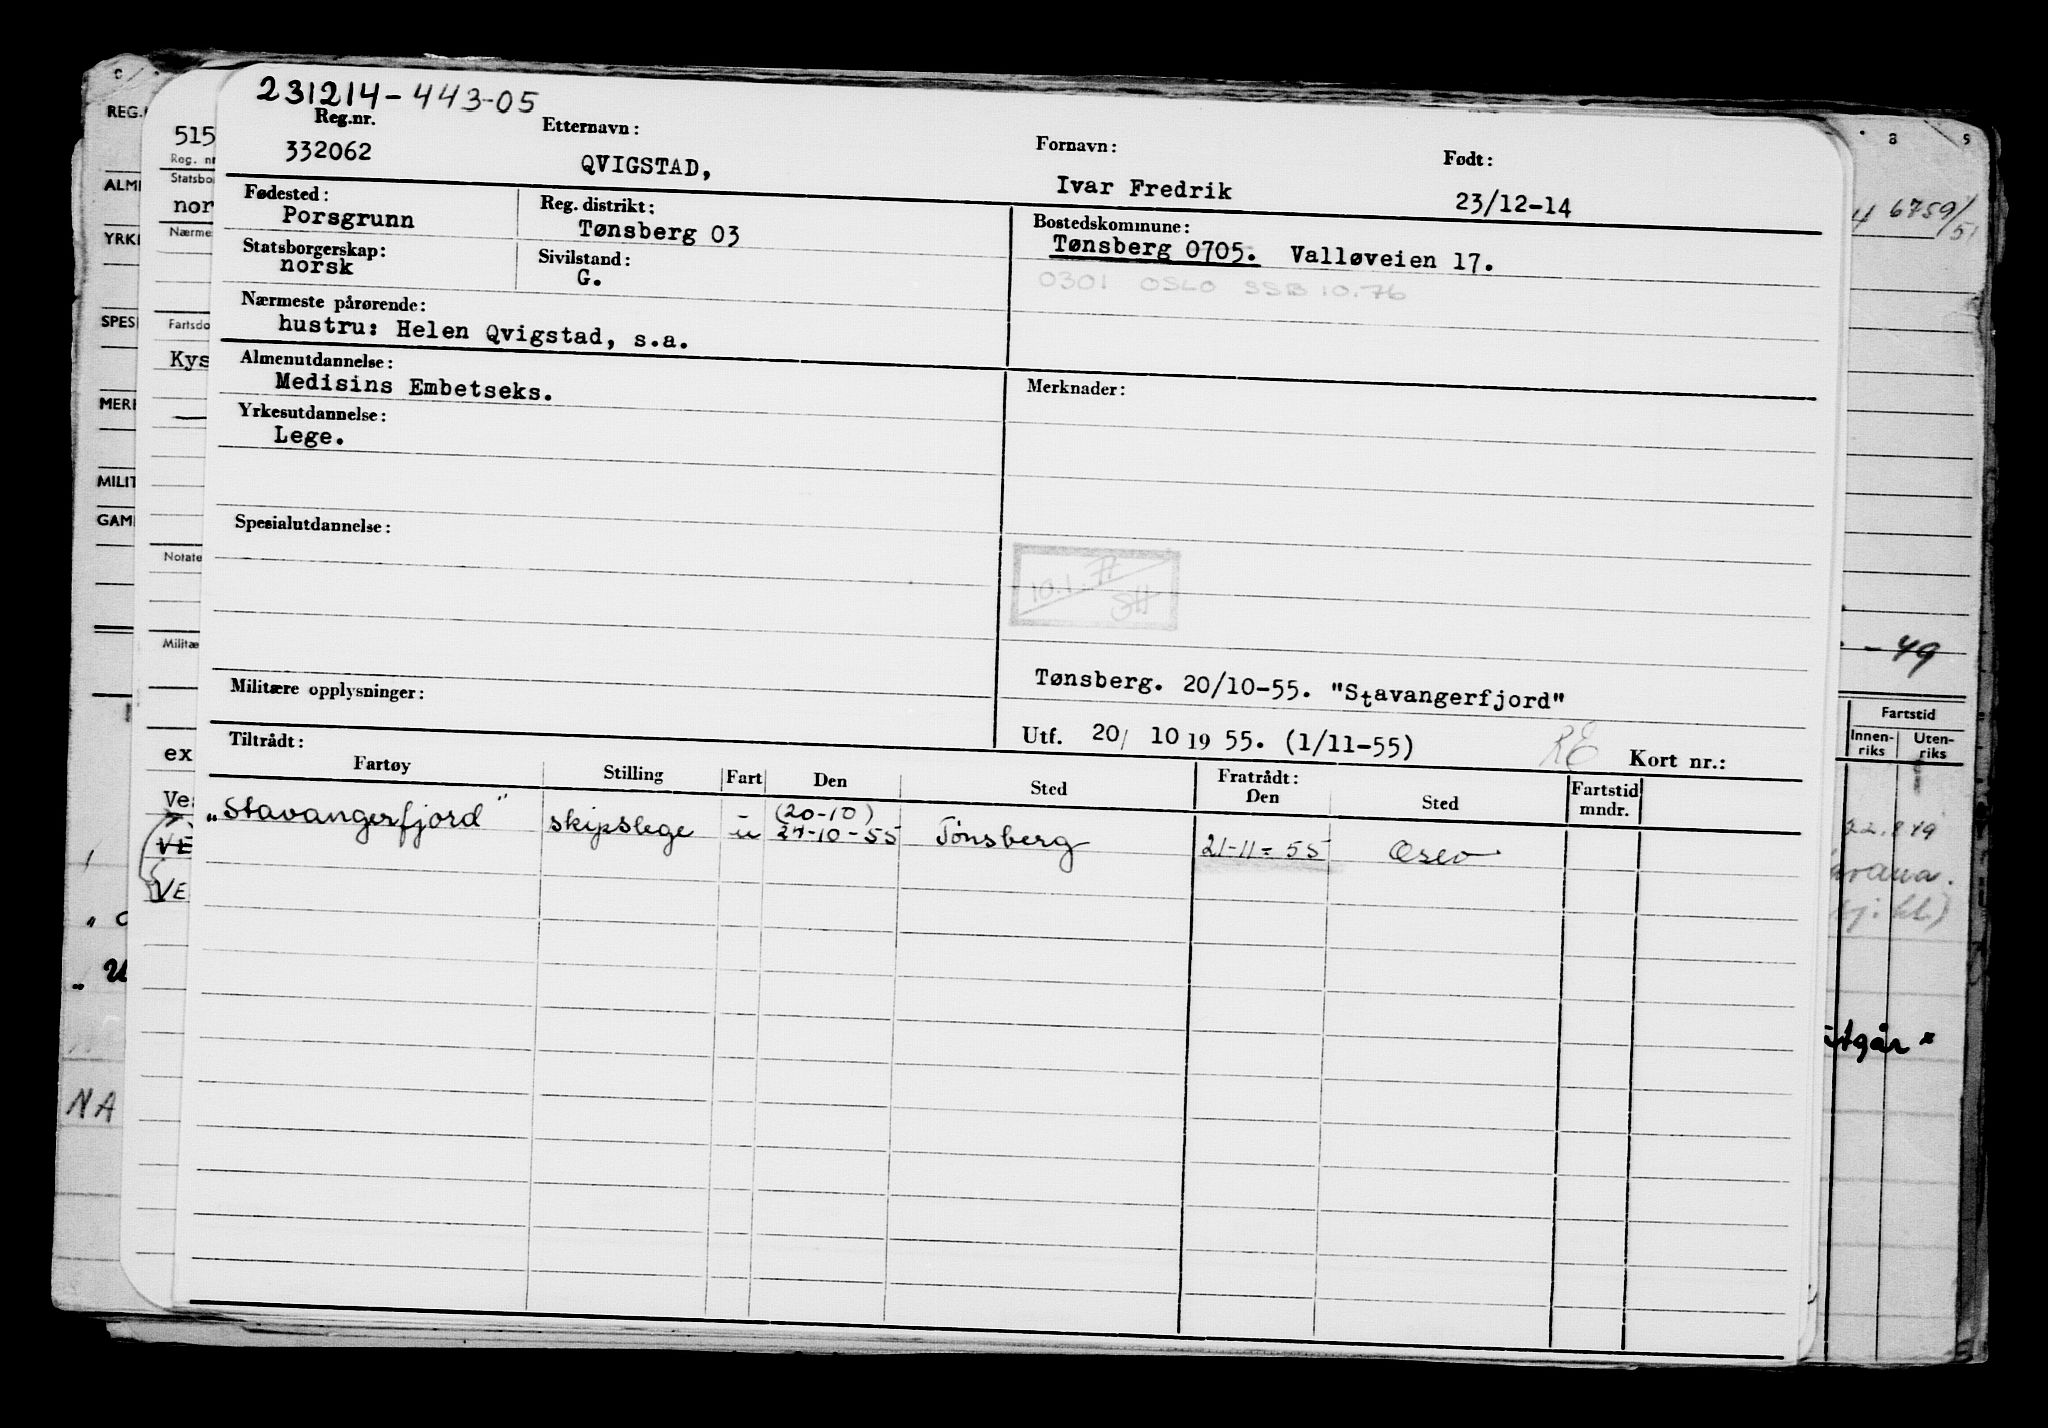 231214-443-05
Reg.nr. Etternavn: Fornavn: Født:
332062 QVIGSTAD, Ivar Fredrik 23/12-14
Fødested: Reg. distrikt: Bostedskommune:
Porsgrunn Tønsberg 03 Tønsberg 0705. Valløveien 17.
Statsborgerskap: Sivilstand:
norsk G. 0301 OSLO SSB 10.76
Nærmeste pårørende:
hustru: Helen Qvigstad, s.a.
Almenutdannelse: Merknader:
Medisins Embetseks.
Yrkesutdannelse:
Lege.
Spesialutdannelse:
10.1.77
SH
Tønsberg. 20/10-55. "Stavangerfjord"
Militære opplysninger:
Utf. 20/ 10 19 55. (1/11-55) RE Kort nr.:
Tiltrådt: Fratrådt:
Fartøy Stilling Fart Den Sted Den Sted Fartstid mndr.
(20-10)
"Stavangerfjord" skipslege u 24-10-55 Tønsberg 21-11-55 Oslo
REG.
ALM
YRK
SPES
MER
MILIT
GAM
NA
515
Reg. nr
Statsbo
nor
Nærme
Fartsdo
Kys
Notate
Militæ
ex
Ve
VE
VE
a s
6759/51
-49
Fartstid
Innen-riks Uten-riks
utgår"